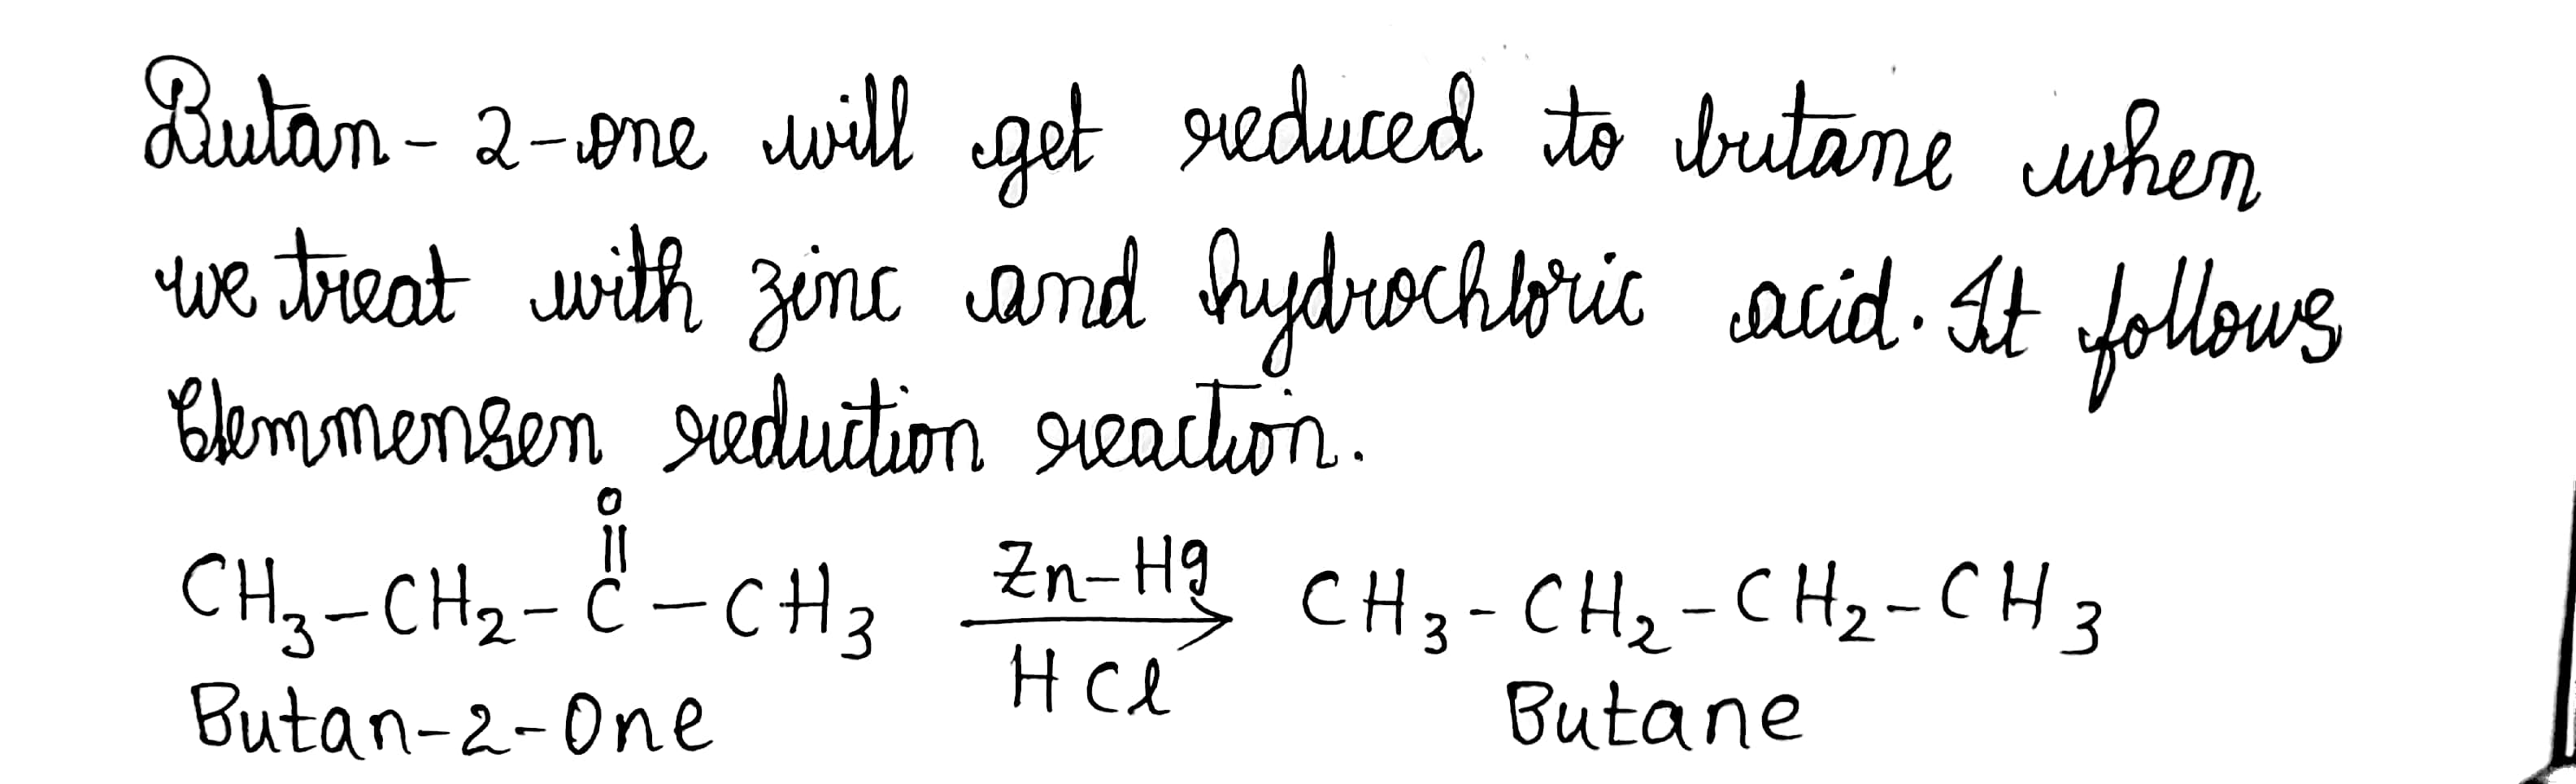 Butan-2-one will get reduced to butane when
we treat with zinc and hydrochloric acid. It follows
Clemmensen reduction reaction.
O
||
CH₃-CH₂-C-CH₃ Zn-Hg CH₃-CH₂-CH₂-CH₃
HCl
Butan-2-One Butane